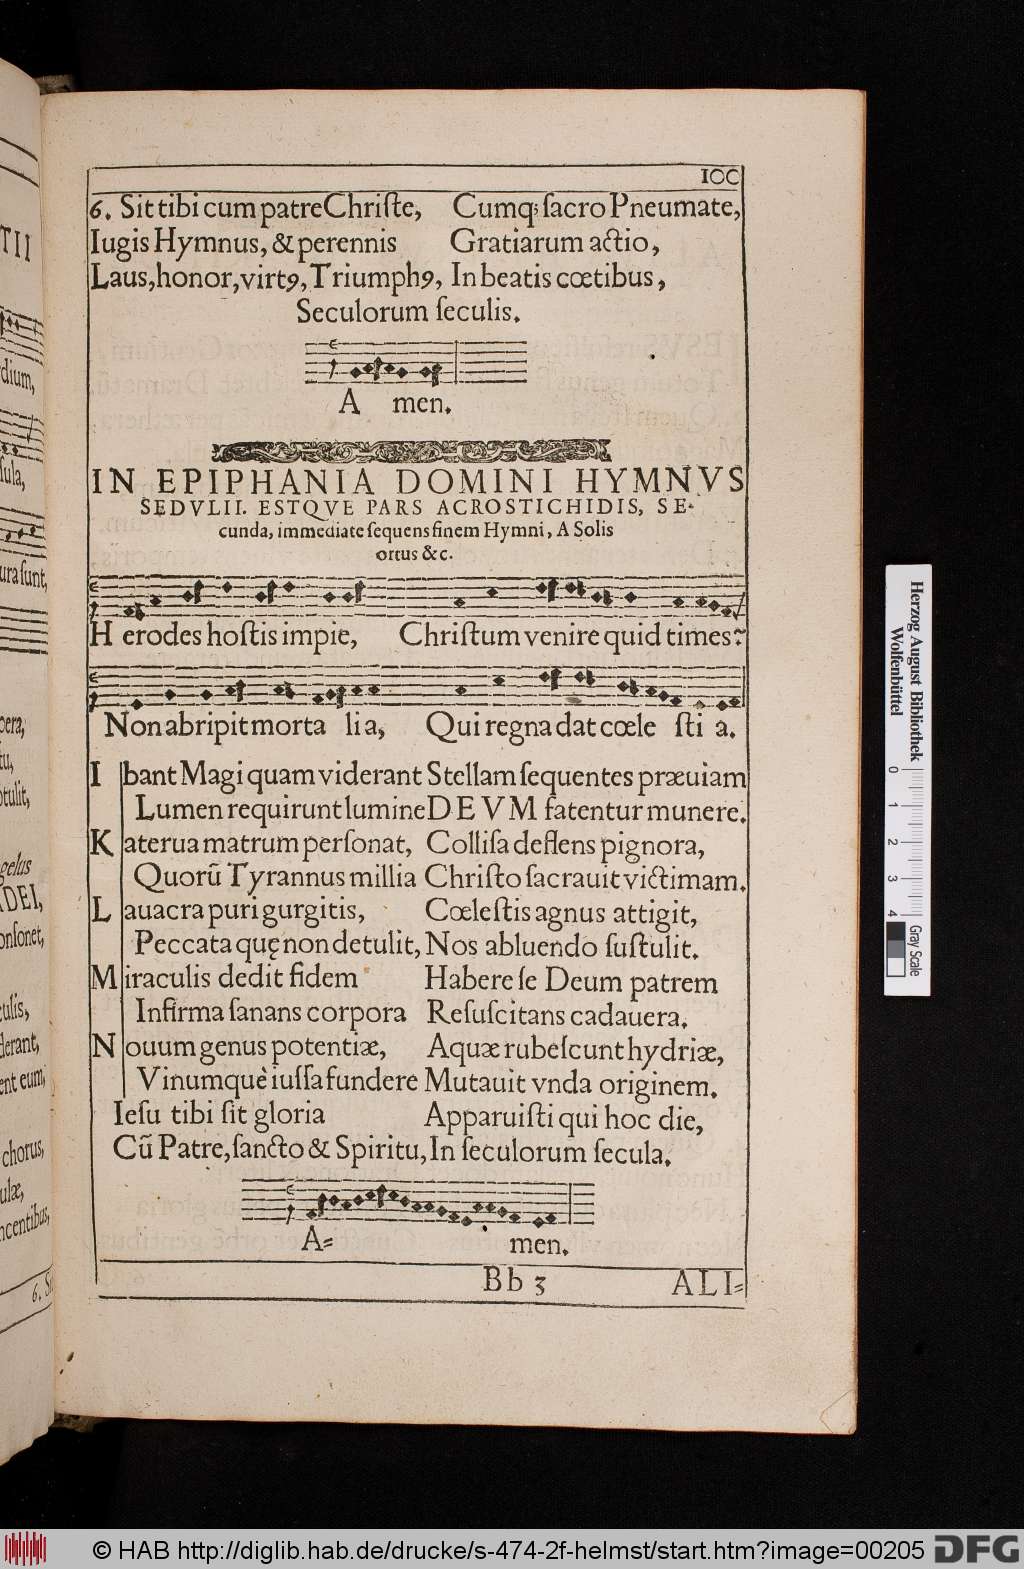 ICC
6. Sit tibi cum patre Christe, Cumq; sacro Pneumate,
Iugis Hymnus, & perennis Gratiarum actio,
Laus, honor, virtꝰ, Triumphꝰ, In beatis cœtibus,
Seculorum seculis.
A men.
IN EPIPHANIA DOMINI HYMNVS
SEDVLII. ESTQVE PARS ACROSTICHIDIS, SE-
cunda, immediate sequens finem Hymni, A Solis
ortus &c.
H erodes hostis impie, Christum venire quid times?
Non abripit morta lia, Qui regna dat cœle sti a.
I bant Magi quam viderant Stellam sequentes præuiam
Lumen requirunt lumine DEVM fatentur munere.
K aterua matrum personat, Collisa deflens pignora,
Quorũ Tyrannus millia Christo sacrauit victimam.
L auacra puri gurgitis, Cœlestis agnus attigit,
Peccata quę non detulit, Nos abluendo sustulit.
M iraculis dedit fidem Habere se Deum patrem
Infirma sanans corpora Resuscitans cadauera.
N ouum genus potentiæ, Aquæ rubescunt hydriæ,
Vinumquè iussa fundere Mutauit vnda originem.
Iesu tibi sit gloria Apparuisti qui hoc die,
Cũ Patre, sancto & Spiritu, In seculorum secula.
A= men.
Bb 3 ALI=
TII
dium,
sula,
ura sunt,
pera,
tu,
otulit,
gelus
DEI,
onsonet,
culis,
derant,
ent eum,
chorus,
ulæ,
ncentibus,
6. S
Herzog August Bibliothek
Wolfenbüttel
0 1 2 3 4
Gray Scale
© HAB http://diglib.hab.de/drucke/s-474-2f-helmst/start.htm?image=00205 DFG